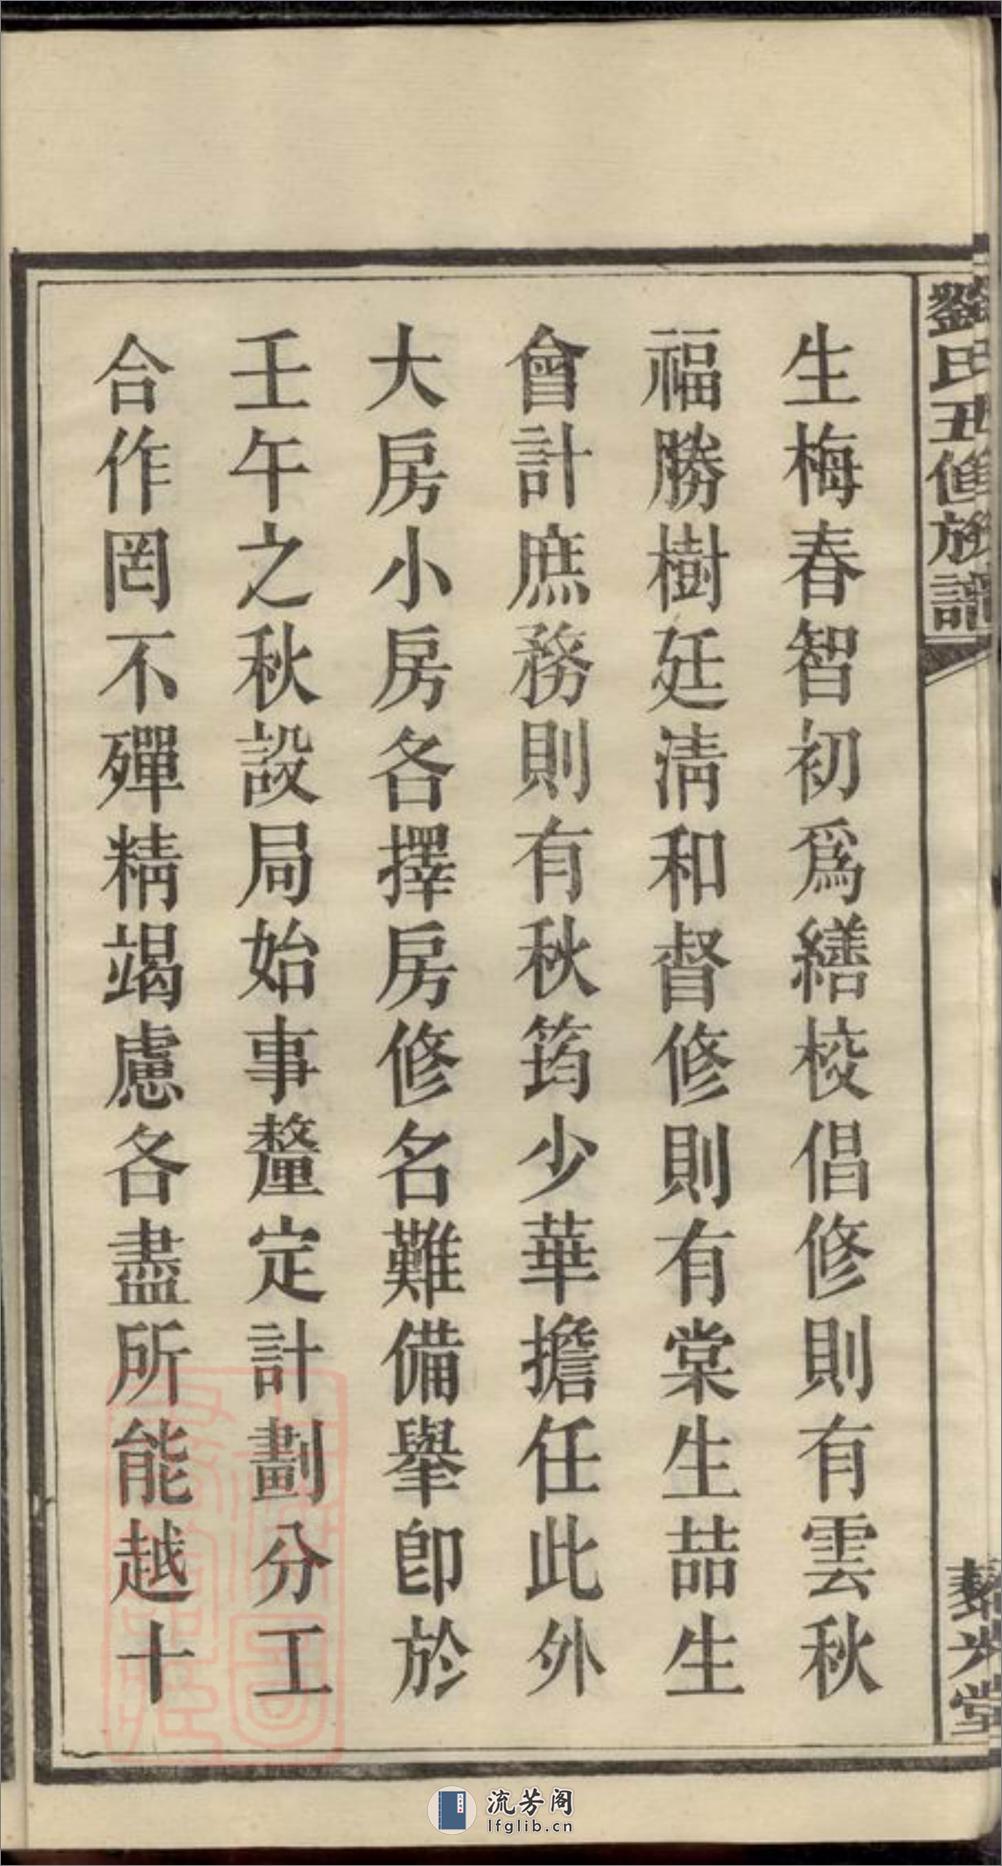 劉氏五修族譜
藜光堂
生梅春智初爲繕校倡修則有雲秋
福勝樹廷淸和督修則有棠生喆生
會計庶務則有秋筠少華擔任此外
大房小房各擇房修名難備舉卽於
壬午之秋設局始事釐定計劃分工
合作罔不殫精竭慮各盡所能越十
流芳阁
lfglib.cn